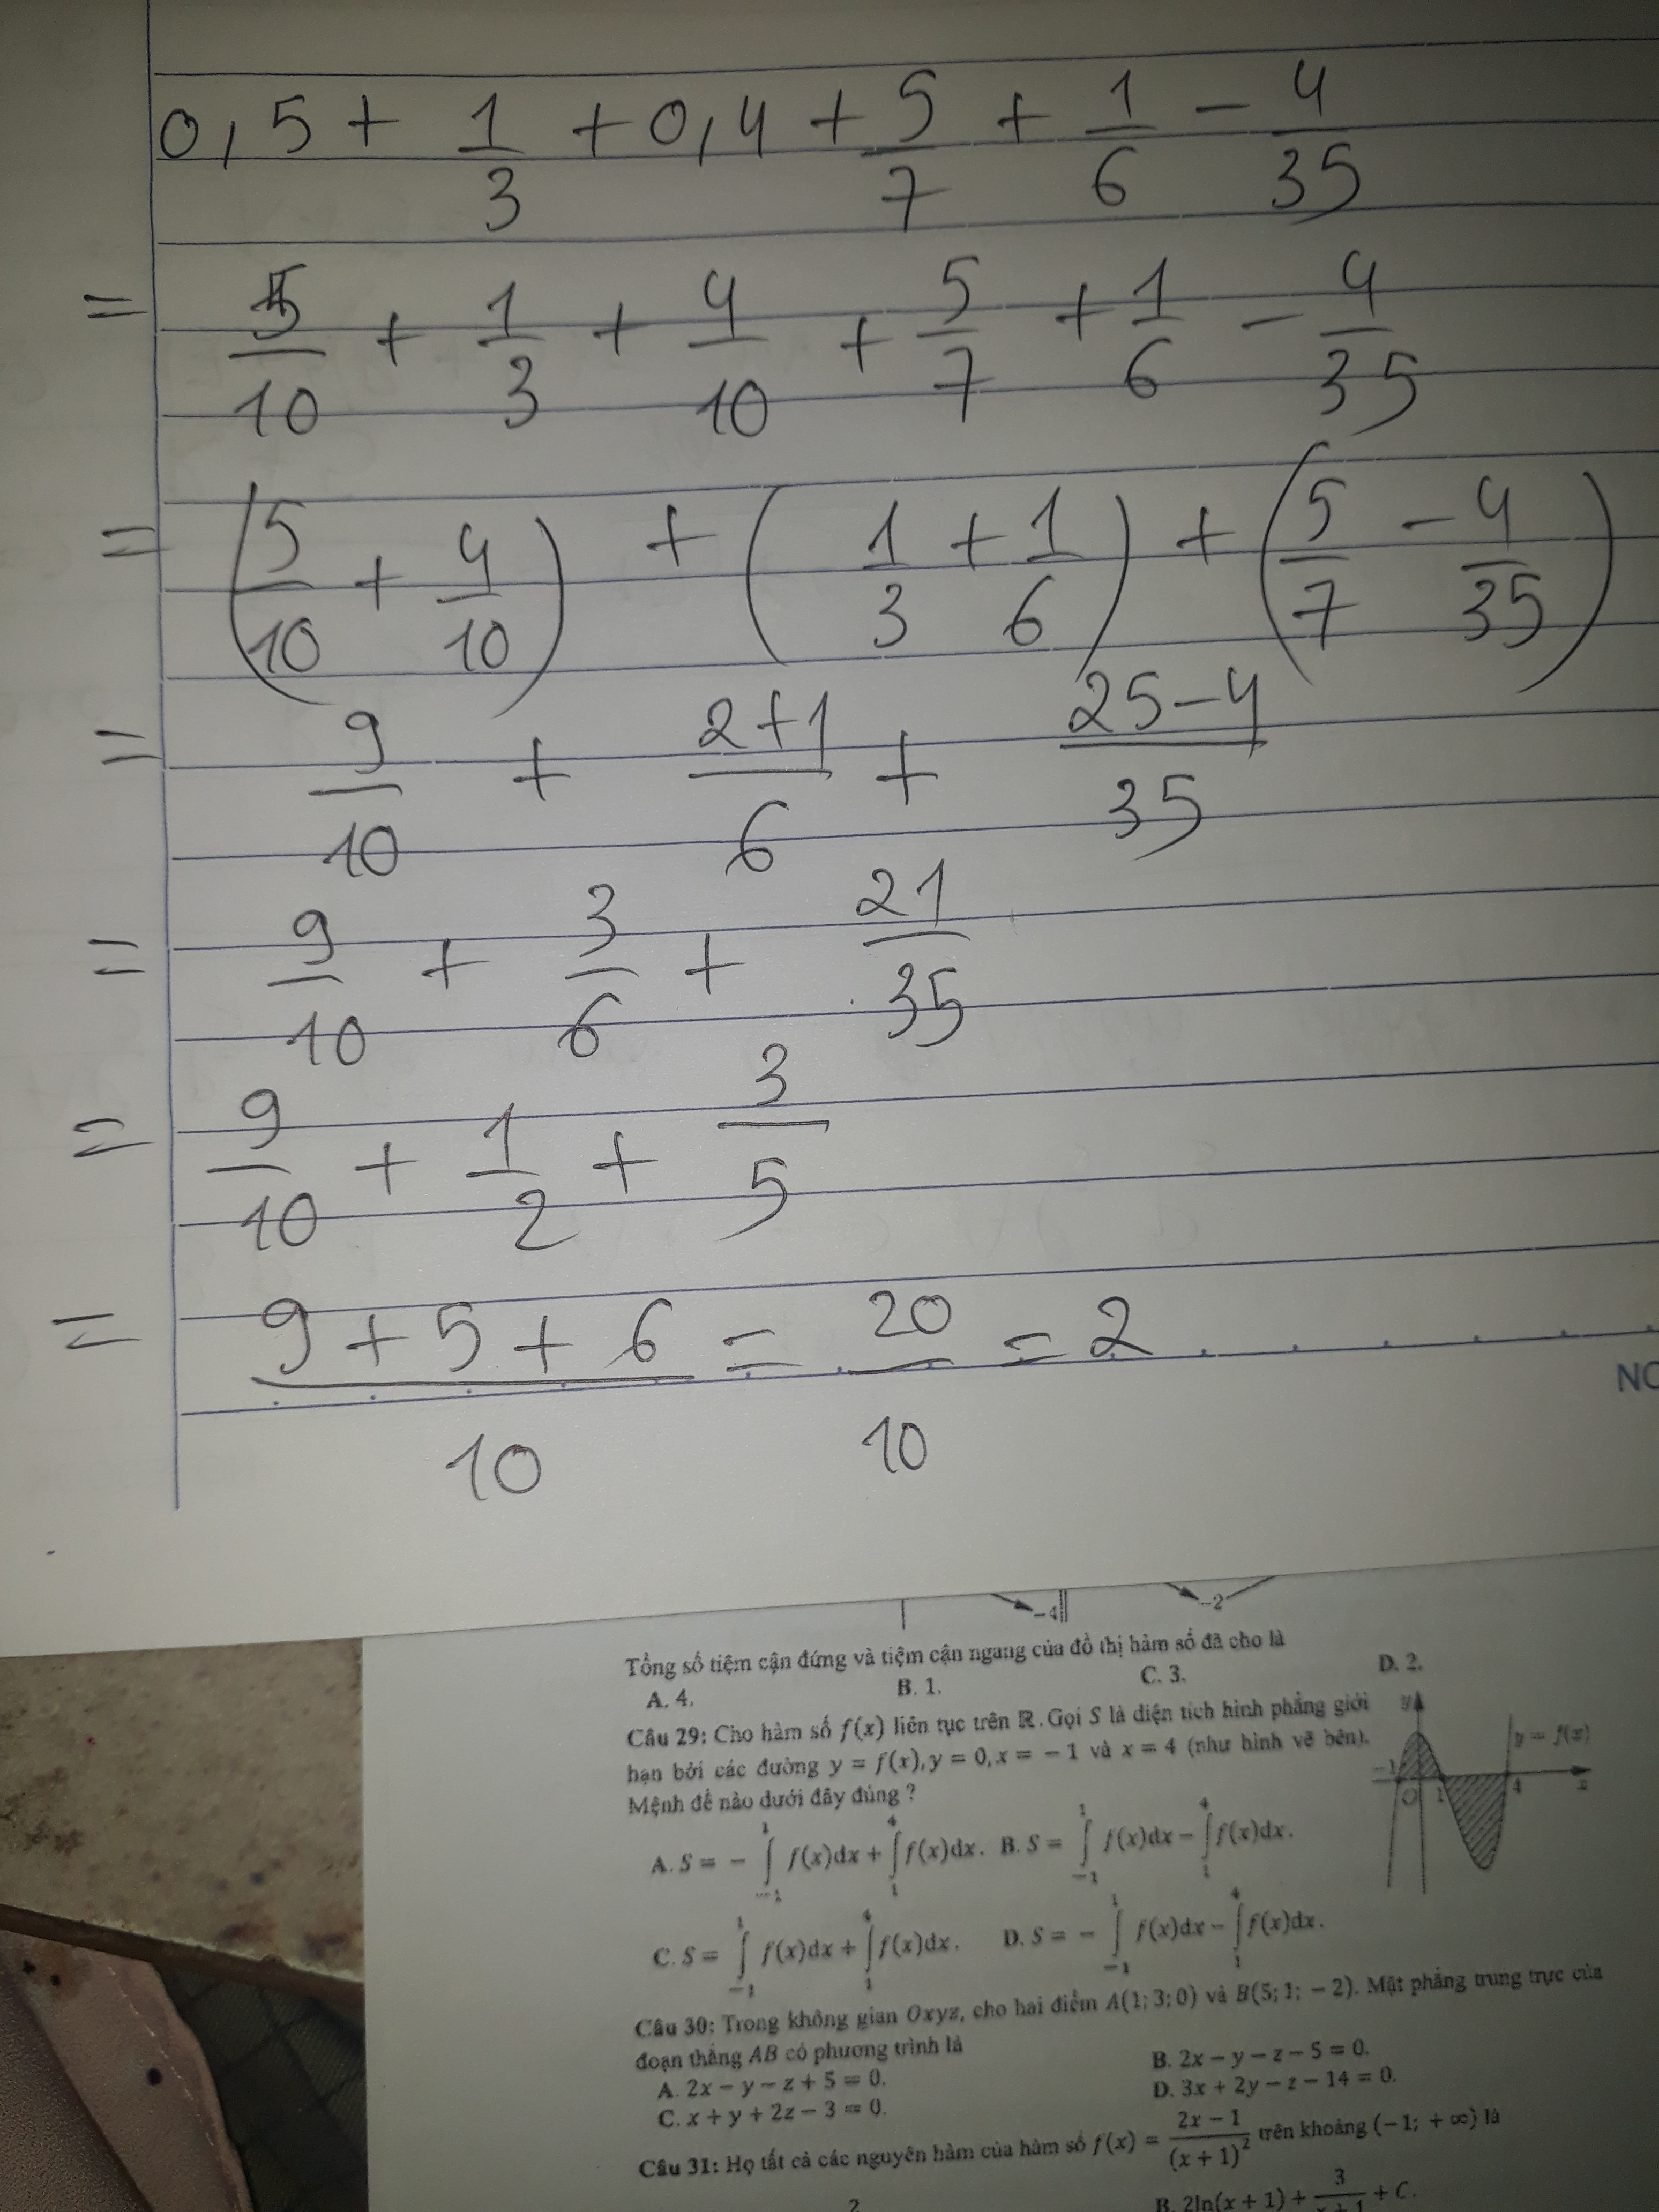 0,5 + 1/3 + 0,4 + 5/7 + 1/6 - 4/35
= 5/10 + 1/3 + 4/10 + 5/7 + 1/6 - 4/35
= (5/10 + 4/10) + (1/3 + 1/6) + (5/7 - 4/35)
= 9/10 + (2+1)/6 + (25-4)/35
= 9/10 + 3/6 + 21/35
= 9/10 + 1/2 + 3/5
= (9+5+6)/10 = 20/10 = 2
NO
-4 -2
Tổng số tiệm cận đứng và tiệm cận ngang của đồ thị hàm số đã cho là
A. 4. B. 1. C. 3. D. 2.
Câu 29: Cho hàm số f(x) liên tục trên ℝ. Gọi S là diện tích hình phẳng giới
hạn bởi các đường y = f(x), y = 0, x = -1 và x = 4 (như hình vẽ bên).
Mệnh đề nào dưới đây đúng ?
y y = f(x) -1 O 1 4 x
A. S = - ∫_{-1}^{1} f(x)dx + ∫_{1}^{4} f(x)dx. B. S = ∫_{-1}^{1} f(x)dx - ∫_{1}^{4} f(x)dx.
C. S = ∫_{-1}^{1} f(x)dx + ∫_{1}^{4} f(x)dx. D. S = - ∫_{-1}^{1} f(x)dx - ∫_{1}^{4} f(x)dx.
Câu 30: Trong không gian Oxyz, cho hai điểm A(1; 3; 0) và B(5; 1; -2). Mặt phẳng trung trực của
đoạn thẳng AB có phương trình là
A. 2x - y - z + 5 = 0. B. 2x - y - z - 5 = 0.
C. x + y + 2z - 3 = 0. D. 3x + 2y - z - 14 = 0.
Câu 31: Họ tất cả các nguyên hàm của hàm số f(x) = (2x - 1)/(x + 1)² trên khoảng (-1; +∞) là
2 B. 2ln(x + 1) + 3/(x + 1) + C.